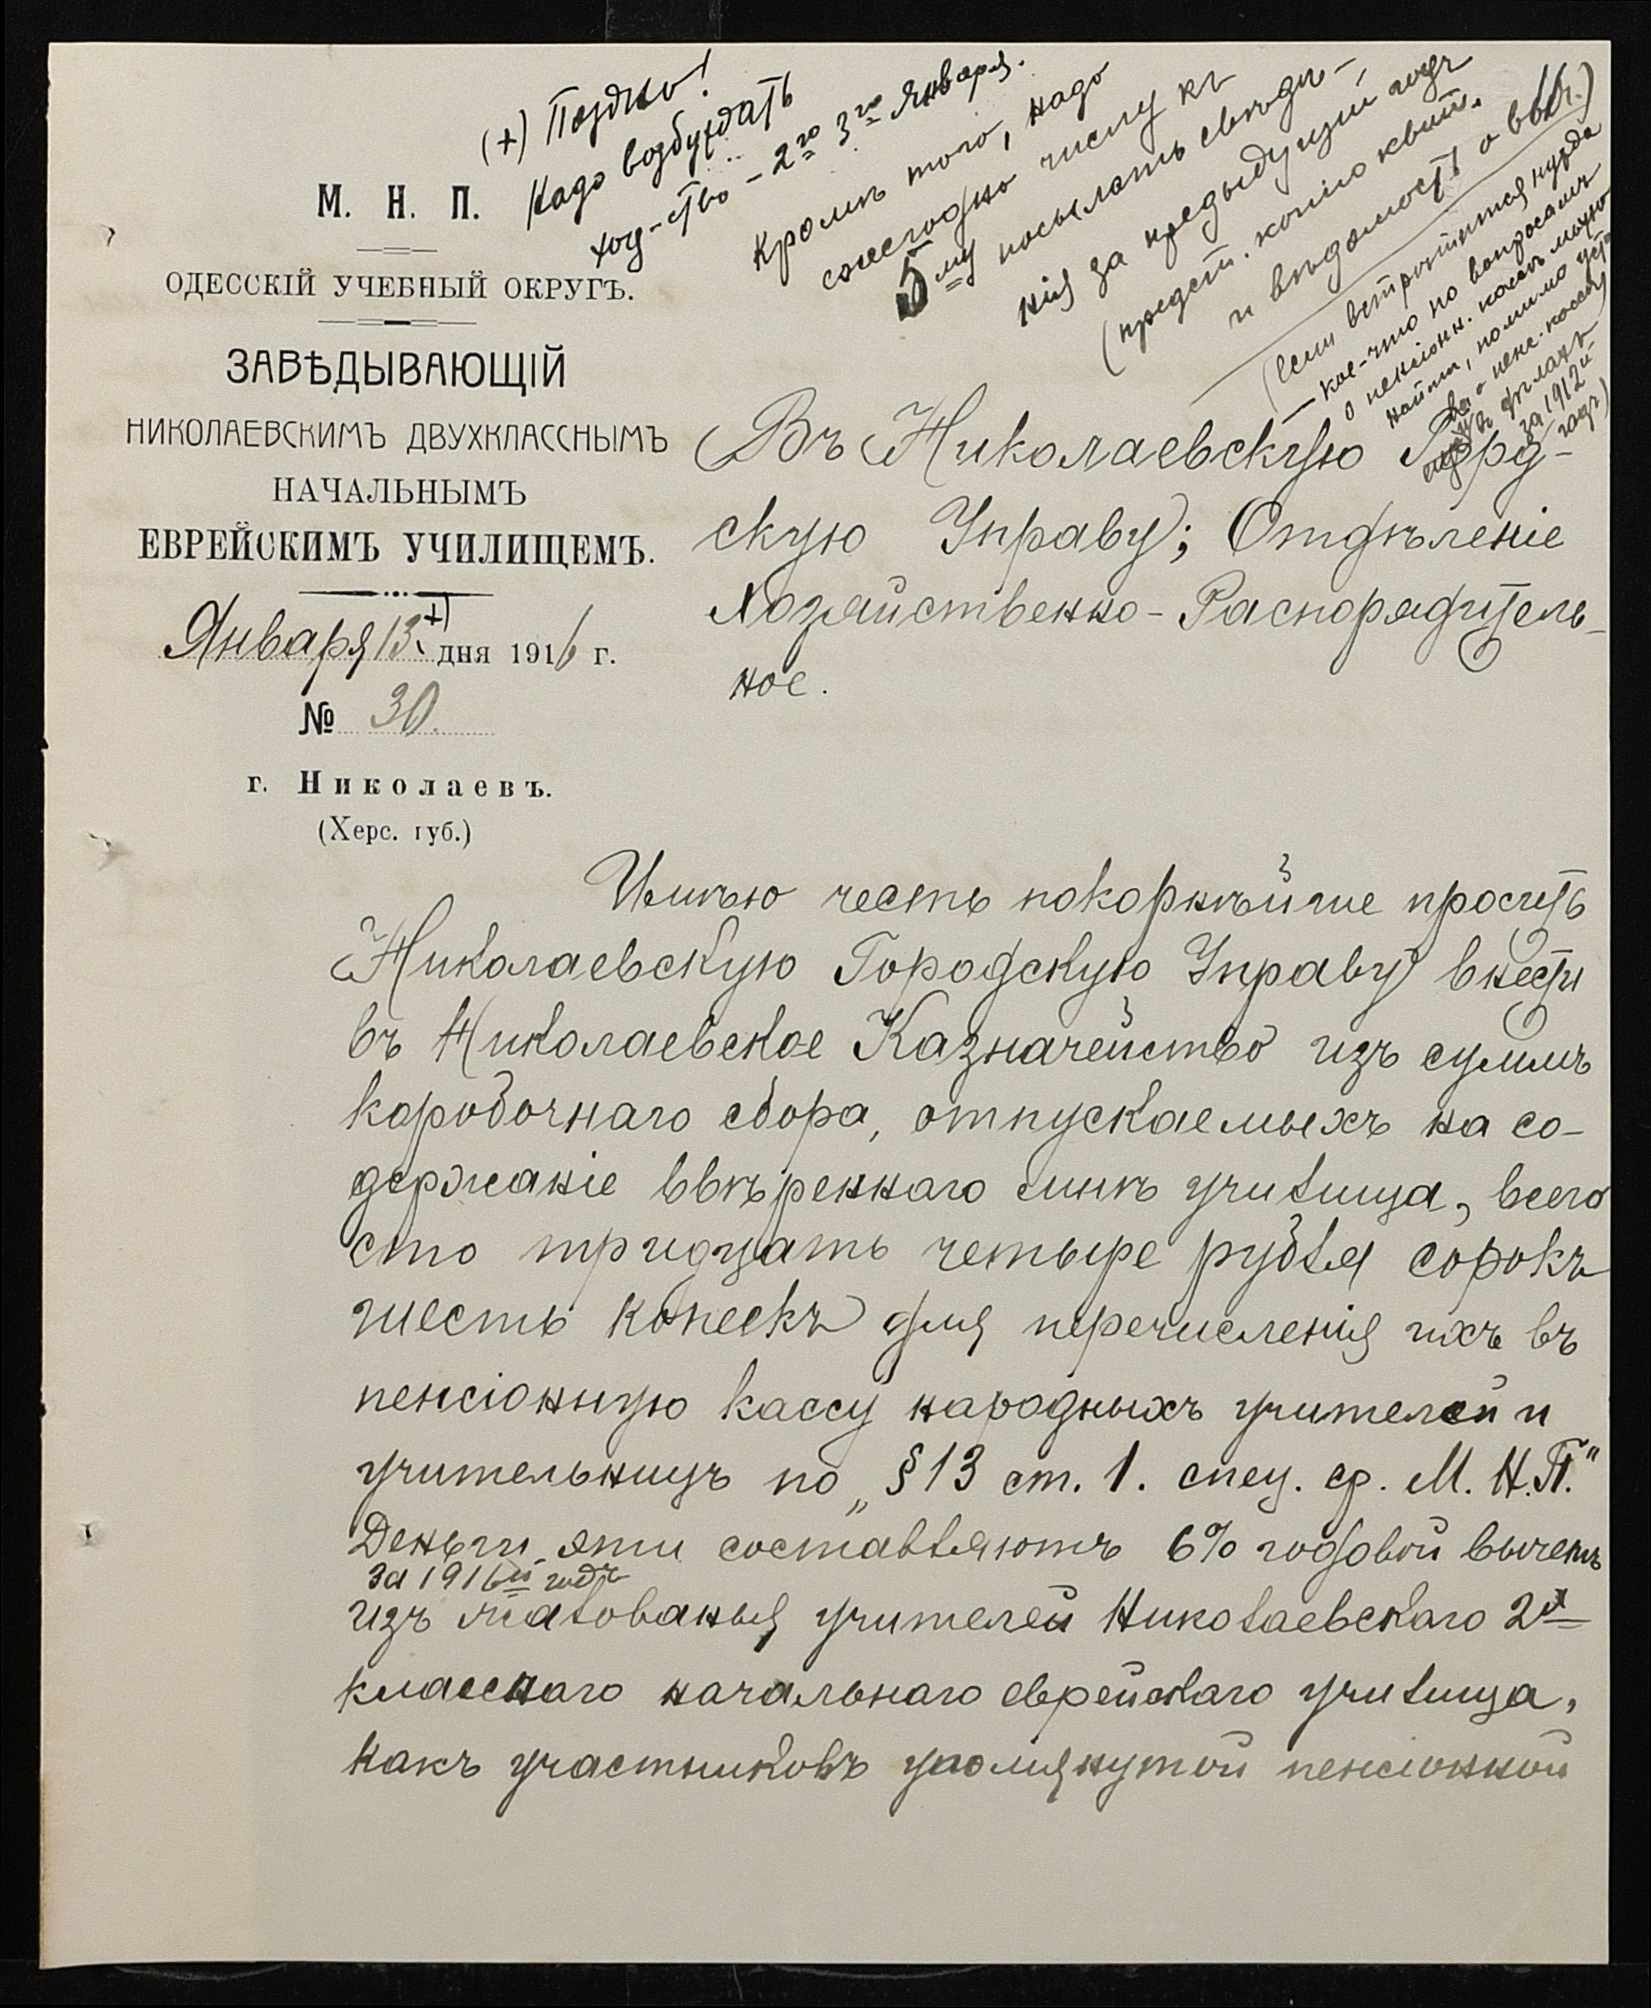 (+) Поздно!
Надо возбуждать
ход-ство – 2го 3го Января.
Кромѣ того, надо
ежегодно числу къ
5му посылать свѣдѣ-
нія за предыдущій годъ
(предст. копію квит.
и вѣдомость о выч.)
(если встрѣтится нужда
кое-что по вопросамъ
о пенсіонн. кассѣ можно
найти, помимо уста
ва о пенс. кассѣ
еще въ дѣлахъ
за 1912й
годъ)
М. Н. П.
ОДЕССКІЙ УЧЕБНЫЙ ОКРУГЪ.
ЗАВѢДЫВАЮЩІЙ
НИКОЛАЕВСКИМЪ ДВУХКЛАССНЫМЪ
НАЧАЛЬНЫМЪ
ЕВРЕЙСКИМЪ УЧИЛИЩЕМЪ.
Января 13 +) дня 1916 г.
№ 30.
г. Николаевъ.
(Херс. губ.)
Въ Николаевскую Город-
скую Управу; Отдѣленіе
Хозяйственно-Распорядитель-
ное.
Имѣю честь покорнѣйше просить
Николаевскую Городскую Управу внести
въ Николаевское Казначейство изъ суммъ
коробочнаго сбора, отпускаемыхъ на со-
держаніе ввѣреннаго мнѣ училища, всего
сто тридцать четыре рубля сорокъ
шесть копеекъ для перечисленія ихъ въ
пенсіонную кассу народныхъ учителей и
учительницъ по „§13 ст. 1. спец. ср. М. Н. П."
Деньги эти составляютъ 6% годовой вычетъ
за 1916й годъ
изъ жалованья учителей Николаевскаго 2х
класснаго начальнаго еврейскаго училища,
какъ участниковъ упомянутой пенсіонной